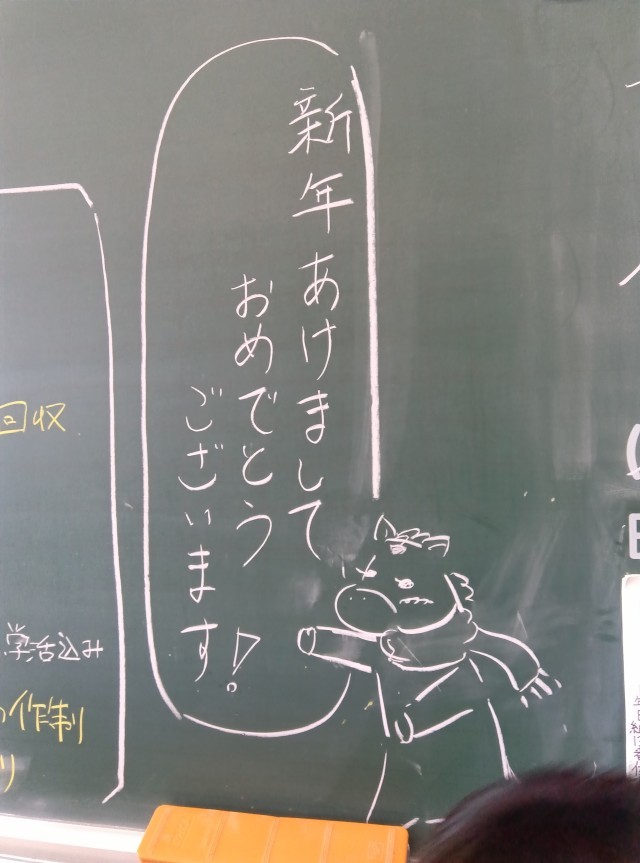 新年あけまして
おめでとう
ございます!
回収
学活込み
作制
り